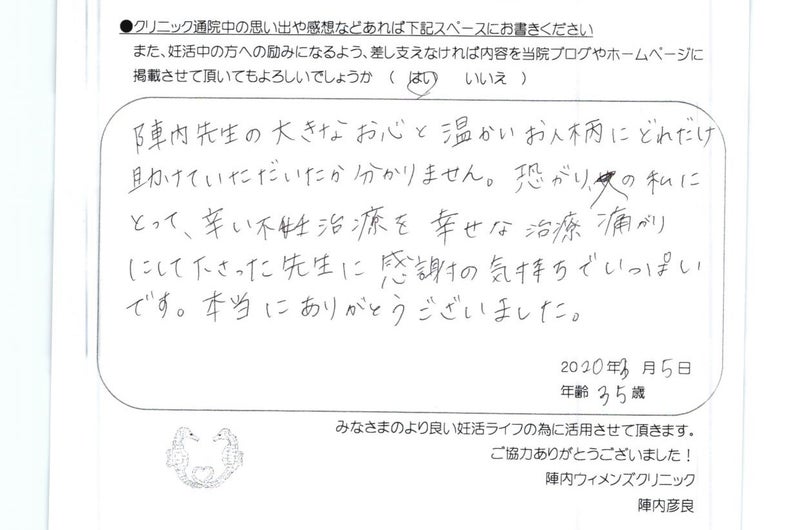 ●クリニック通院中の思い出や感想などあれば下記スペースにお書きください
また、妊活中の方への励みになるよう、差し支えなければ内容を当院ブログやホームページに
掲載させて頂いてもよろしいでしょうか （ はい いいえ ）
陣内先生の大きなお心と温かいお人柄にどれだけ
助けていただいたか分かりません。恐がり、の私に
とって、辛い不妊治療を幸せな治療 痛がり
にして下さった先生に感謝の気持ちでいっぱい
です。本当にありがとうございました。
2020年3月5日
年齢 35歳
みなさまのより良い妊活ライフの為に活用させて頂きます。
ご協力ありがとうございました！
陣内ウィメンズクリニック
陣内彦良